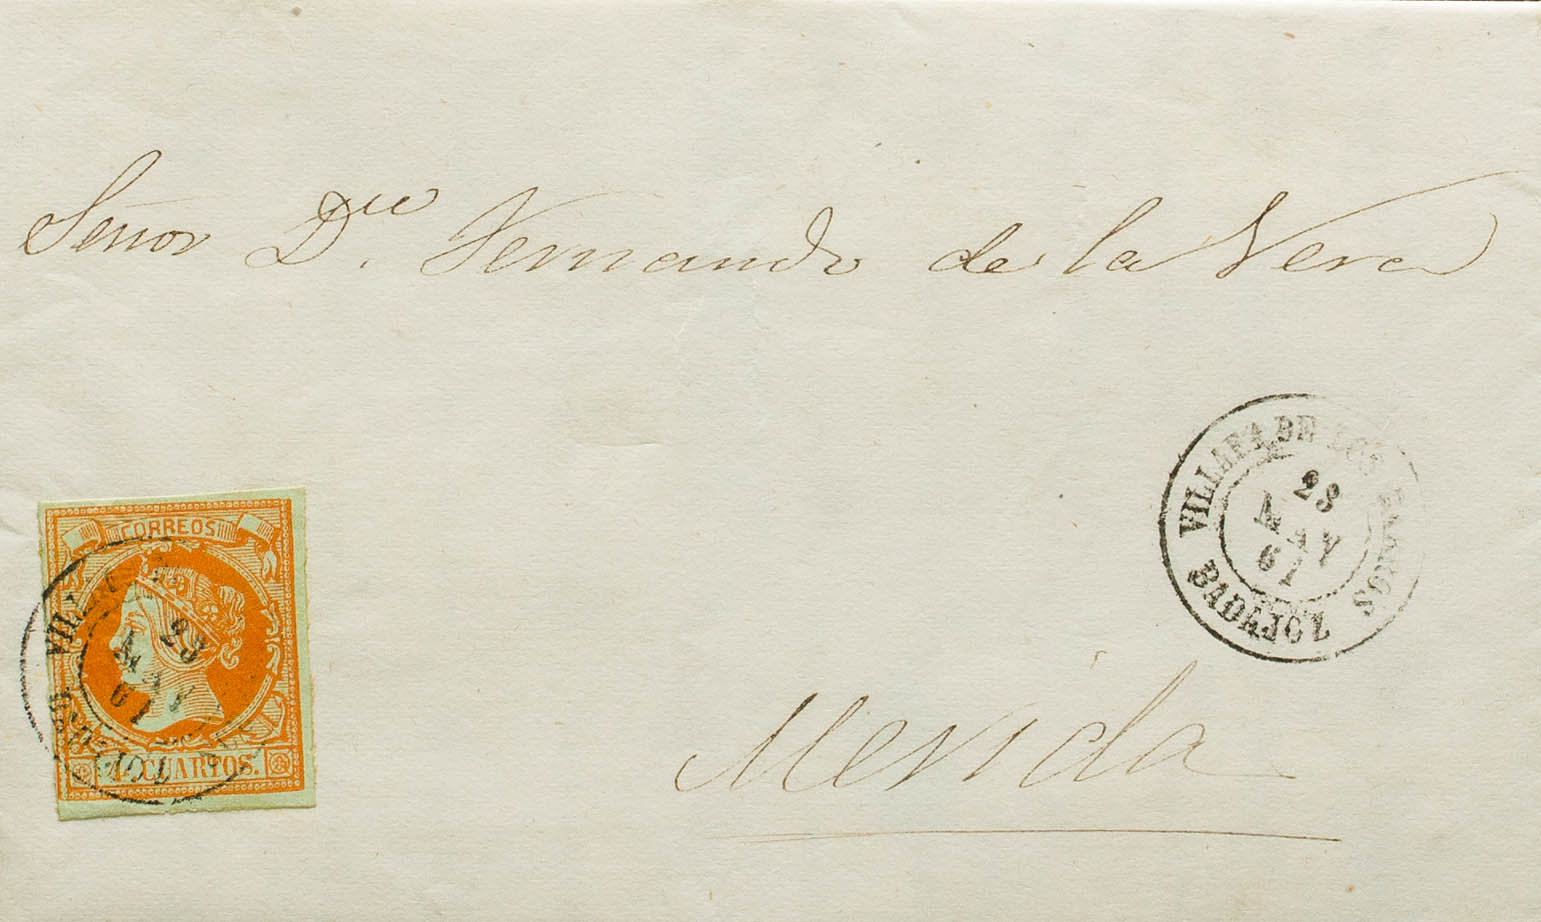 Señor Dn. Fernando de la Vera
VILLAFA DE LOS BARROS
23
MAY
61
BADAJOZ
CORREOS
23
MAY
61
4 CUARTOS.
Merida